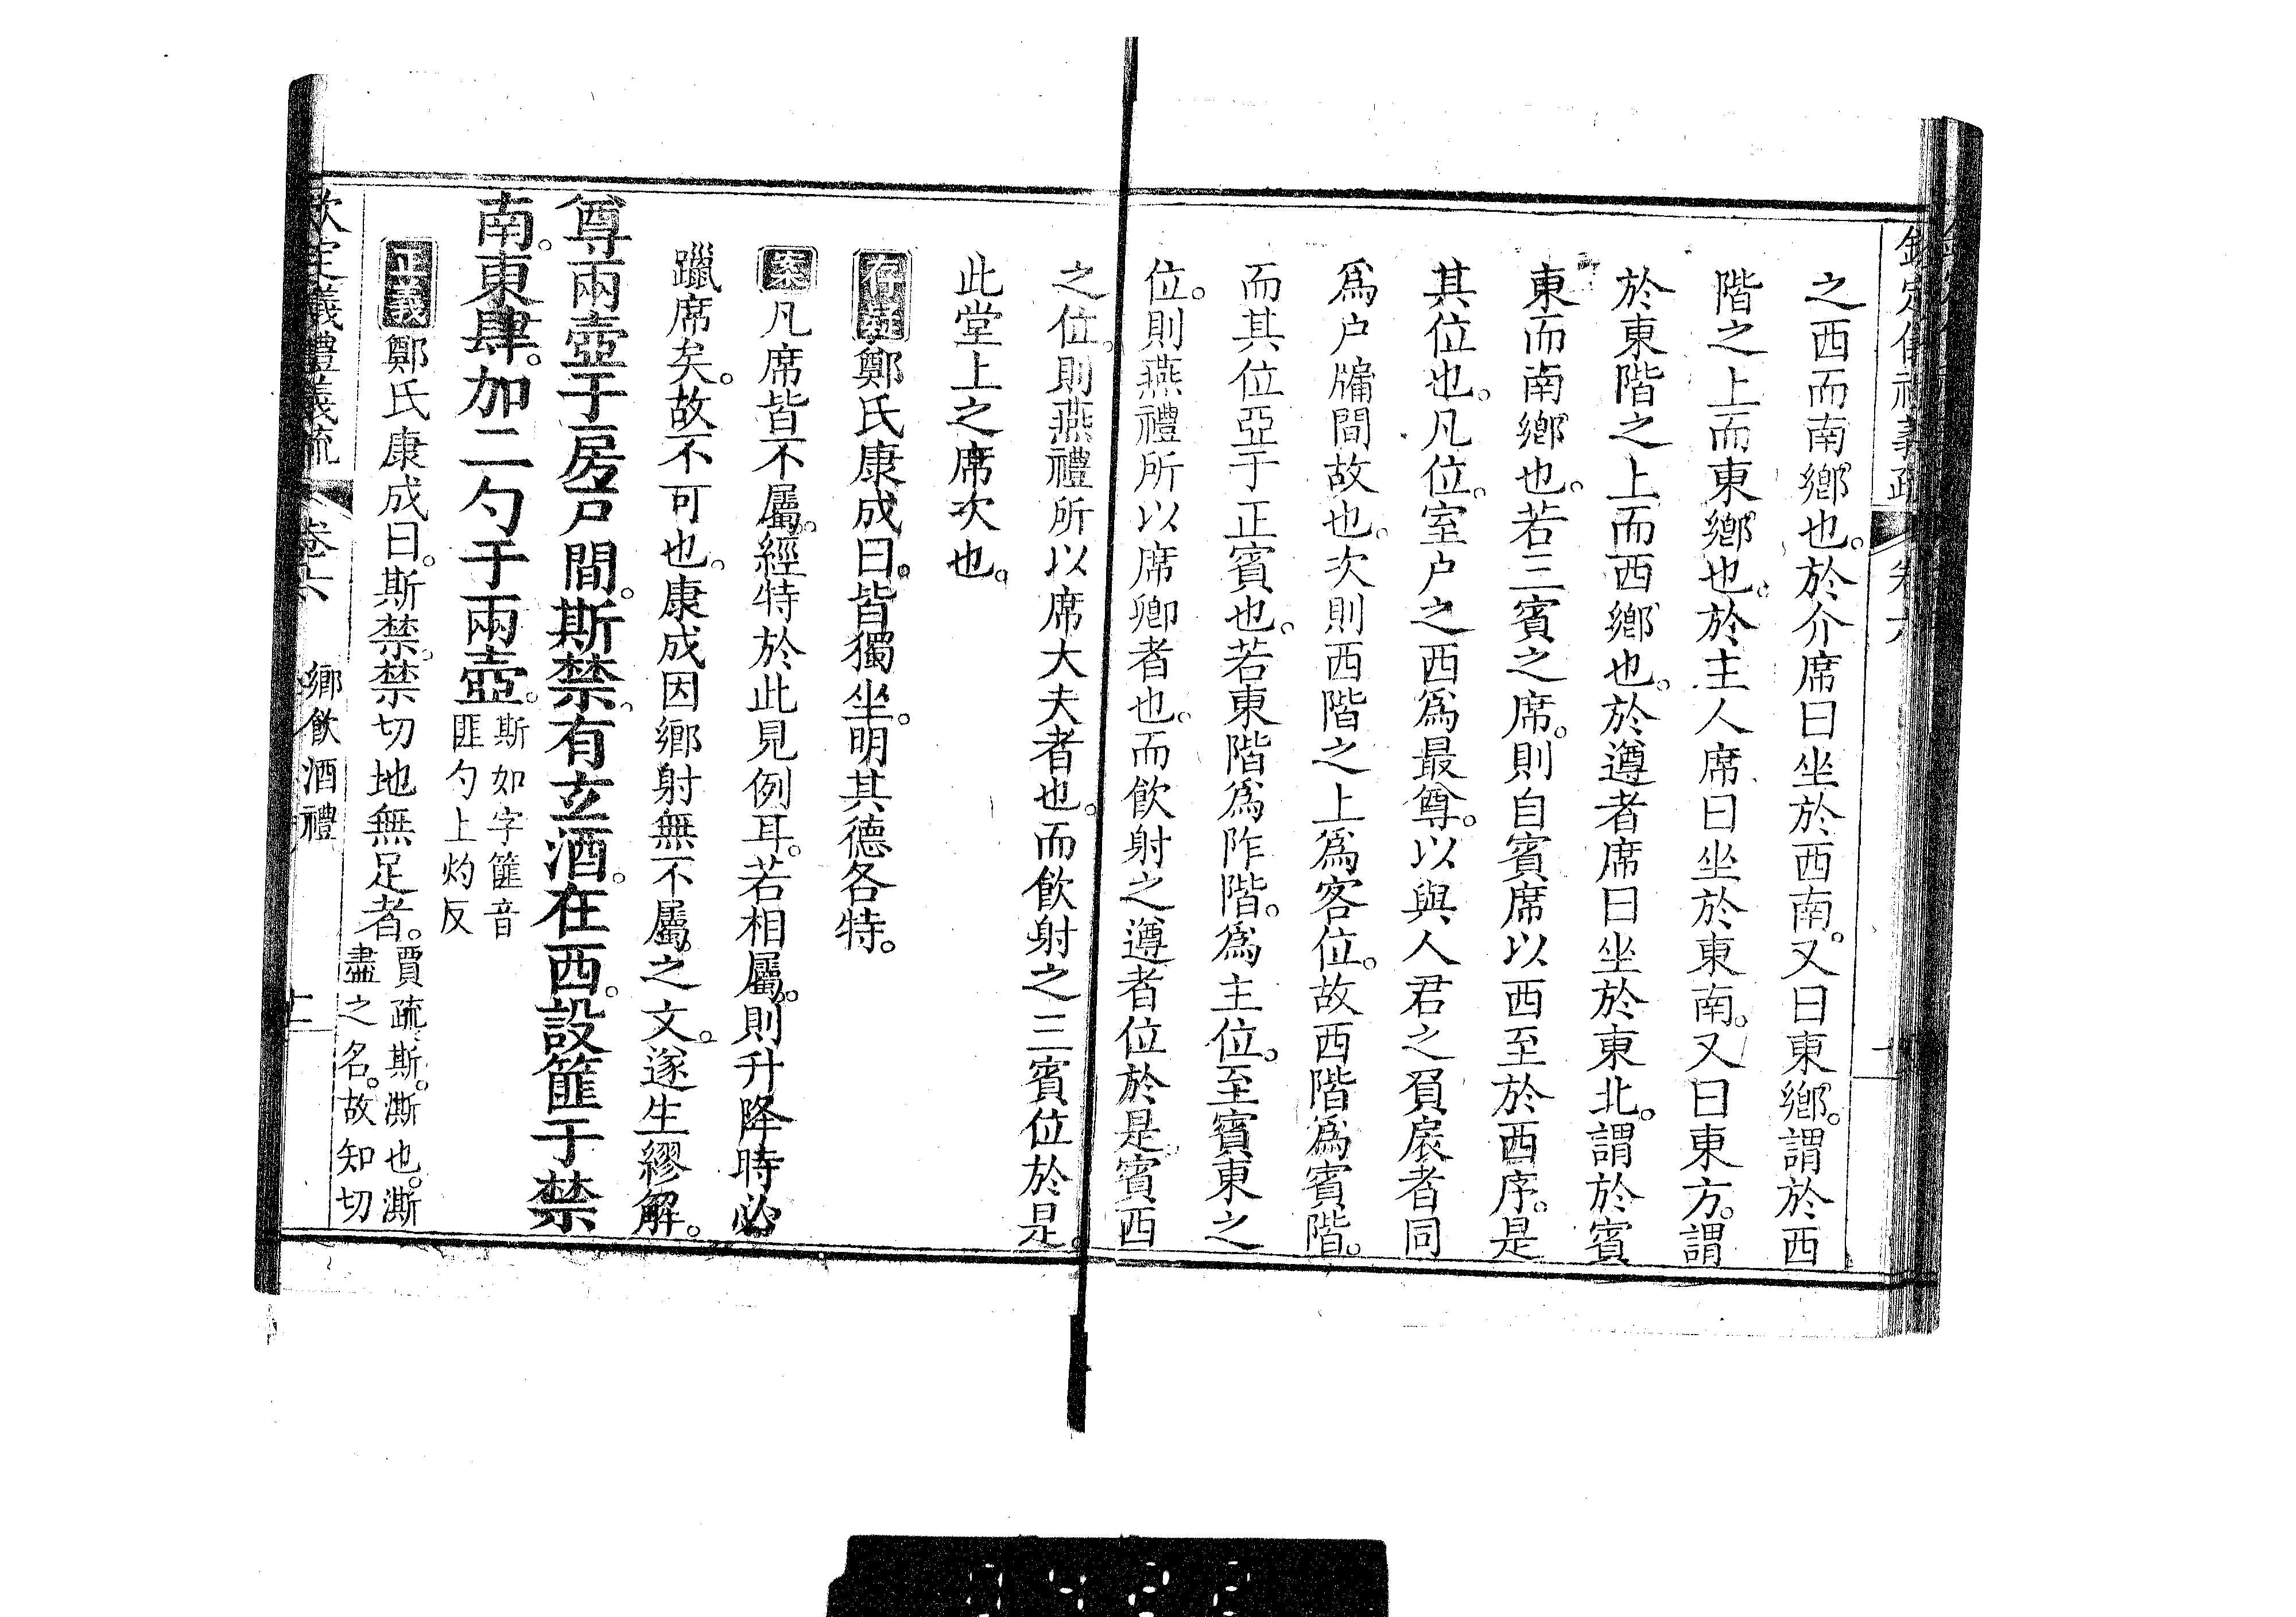 欽定儀禮義疏 卷六
之西而南鄉也。於介席曰坐於西南。又曰東鄉。謂於西
階之上而東鄉也。於主人席曰坐於東南。又曰東方。謂
於東階之上而西鄉也。於遵者席曰坐於東北。謂於賓
東而南鄉也。若三賓之席。則自賓席以西至於西序。是
其位也。凡位。室户之西爲最尊。以與人君之負扆者同
爲户牖間故也。次則西階之上爲客位。故西階爲賓階。
而其位亞于正賓也。若東階爲阼階。爲主位。至賓東之
位。則燕禮所以席卿者也。而飲射之遵者位於是。賓西
之位。則燕禮所以席大夫者也。而飲射之三賓位於是。
此堂上之席次也。
存疑鄭氏康成曰。皆獨坐。明其德各特。
案凡席皆不屬。經特於此見例耳。若相屬。則升降時必
躐席矣。故不可也。康成因鄉射無不屬之文。遂生繆解。
尊兩壺于房户間。斯禁。有玄酒。在西。設篚于禁
南。東肆。加二勺于兩壺。斯如字篚音
匪勺上灼反
正義鄭氏康成曰。斯禁。禁切地無足者。賈疏。斯。澌也。澌
盡之名。故知切
欽定儀禮義疏 卷六 鄉飲酒禮